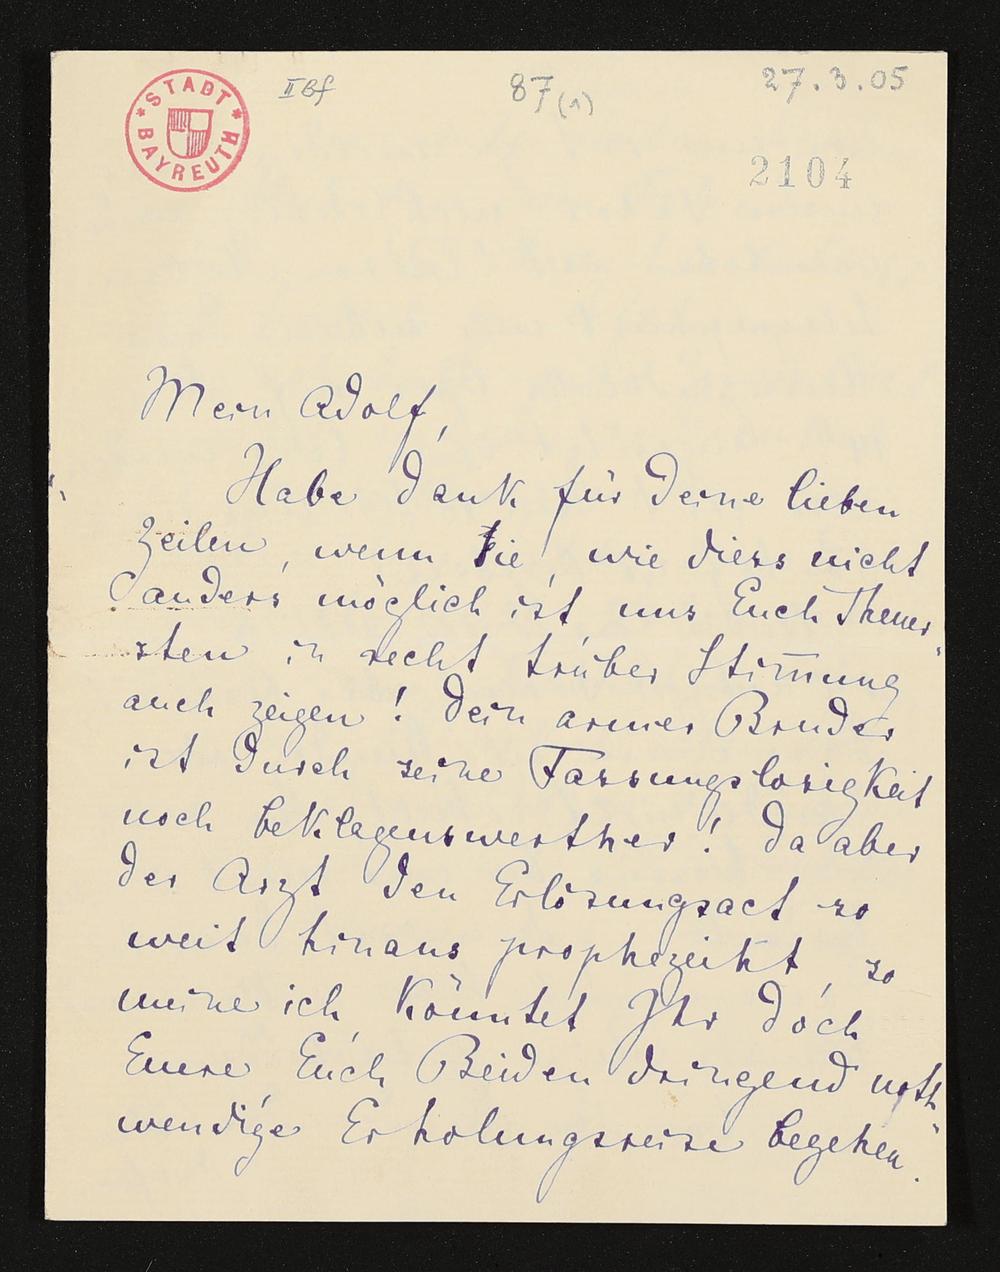 STADT
BAYREUTH
II Bf
87 (1)
27.3.05
2104
Mein Adolf,
Habe Dank für Deine lieben
Zeilen, wenn sie, wie diess nicht
anders möglich ist uns Euch Theuer-
sten in recht trüber Stim̅ung
auch zeigen! Dein armer Bruder
ist durch seine Fassungslosigkeit
noch beklagenswerther! Da aber
der Arzt den Erlösungsact so
weit hinaus prophezeiht, so
meine ich, könntet Ihr doch
Euere, Euch Beiden dringend noth-
wendige Erholungsreise begehen.